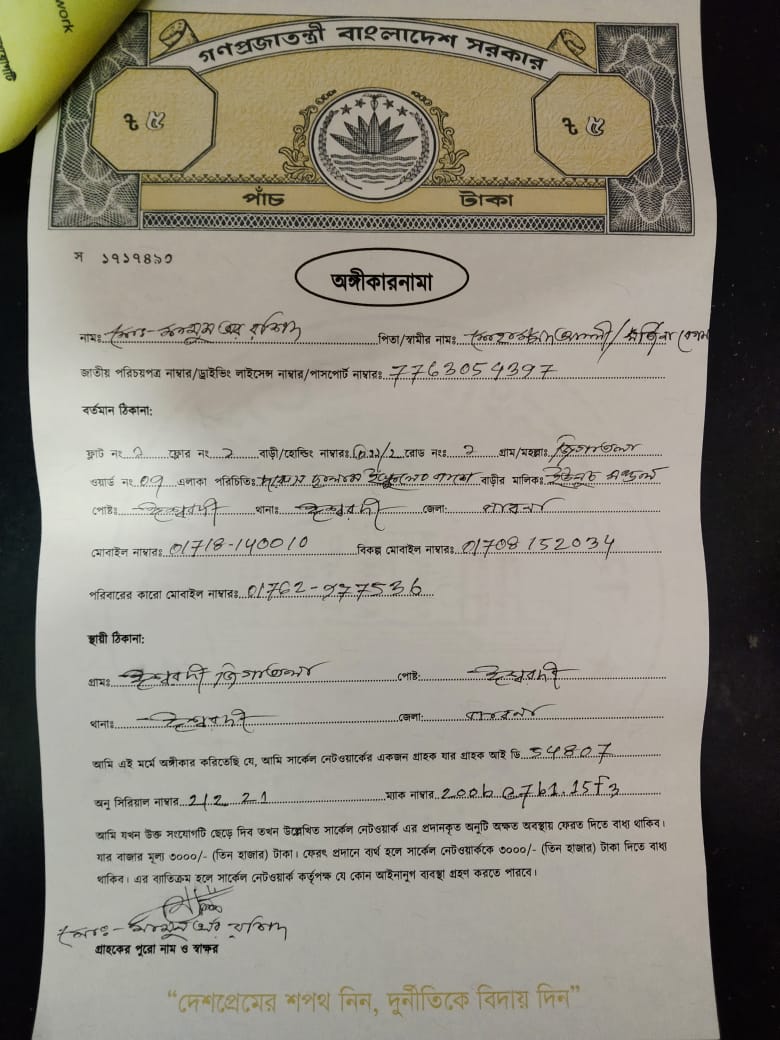 work
গণপ্রজাতন্ত্রী বাংলাদেশ সরকার
৳ ৫ ৳ ৫
পাঁচ টাকা
স ১৭১৭৪৯৩
অঙ্গীকারনামা
নামঃ মোঃ- মামুন অর রশিদ পিতা/স্বামীর নামঃ
জাতীয় পরিচয়পত্র নাম্বার/ড্রাইভিং লাইসেন্স নাম্বার/পাসপোর্ট নাম্বারঃ 7763054397
বর্তমান ঠিকানা:
ফ্লাট নং 2 ফ্লোর নং 2 বাড়ী/হোল্ডিং নাম্বারঃ রোড নংঃ 2 গ্রাম/মহল্লাঃ জিগাতলা
ওয়ার্ড নং 09 এলাকা পরিচিতিঃ পাশে বাড়ীর মালিকঃ
পোষ্টঃ ঈশ্বরদী থানাঃ ঈশ্বরদী জেলা: পাবনা
মোবাইল নাম্বারঃ 01718-140010 বিকল্প মোবাইল নাম্বারঃ 01708 152034
পরিবারের কারো মোবাইল নাম্বারঃ 01762-977536
স্থায়ী ঠিকানা:
গ্রামঃ ঈশ্বরদী জিগাতলা পোষ্ট: ঈশ্বরদী
থানাঃ ঈশ্বরদী জেলা: পাবনা
আমি এই মর্মে অঙ্গীকার করিতেছি যে, আমি সার্কেল নেটওয়ার্কের একজন গ্রাহক যার গ্রাহক আই ডি 54807
অনু সিরিয়াল নাম্বার 2/2 21 ম্যাক নাম্বার
আমি যখন উক্ত সংযোগটি ছেড়ে দিব তখন উল্লেখিত সার্কেল নেটওয়ার্ক এর প্রদানকৃত অনুটি অক্ষত অবস্থায় ফেরত দিতে বাধ্য থাকিব।
যার বাজার মূল্য ৩০০০/- (তিন হাজার) টাকা। ফেরৎ প্রদানে ব্যর্থ হলে সার্কেল নেটওয়ার্ককে ৩০০০/- (তিন হাজার) টাকা দিতে বাধ্য
থাকিব। এর ব্যতিক্রম হলে সার্কেল নেটওয়ার্ক কর্তৃপক্ষ যে কোন আইনানুগ ব্যবস্থা গ্রহণ করতে পারবে।
মোঃ- মামুন অর রশিদ
গ্রাহকের পুরো নাম ও স্বাক্ষর
“দেশপ্রেমের শপথ নিন, দুর্নীতিকে বিদায় দিন”